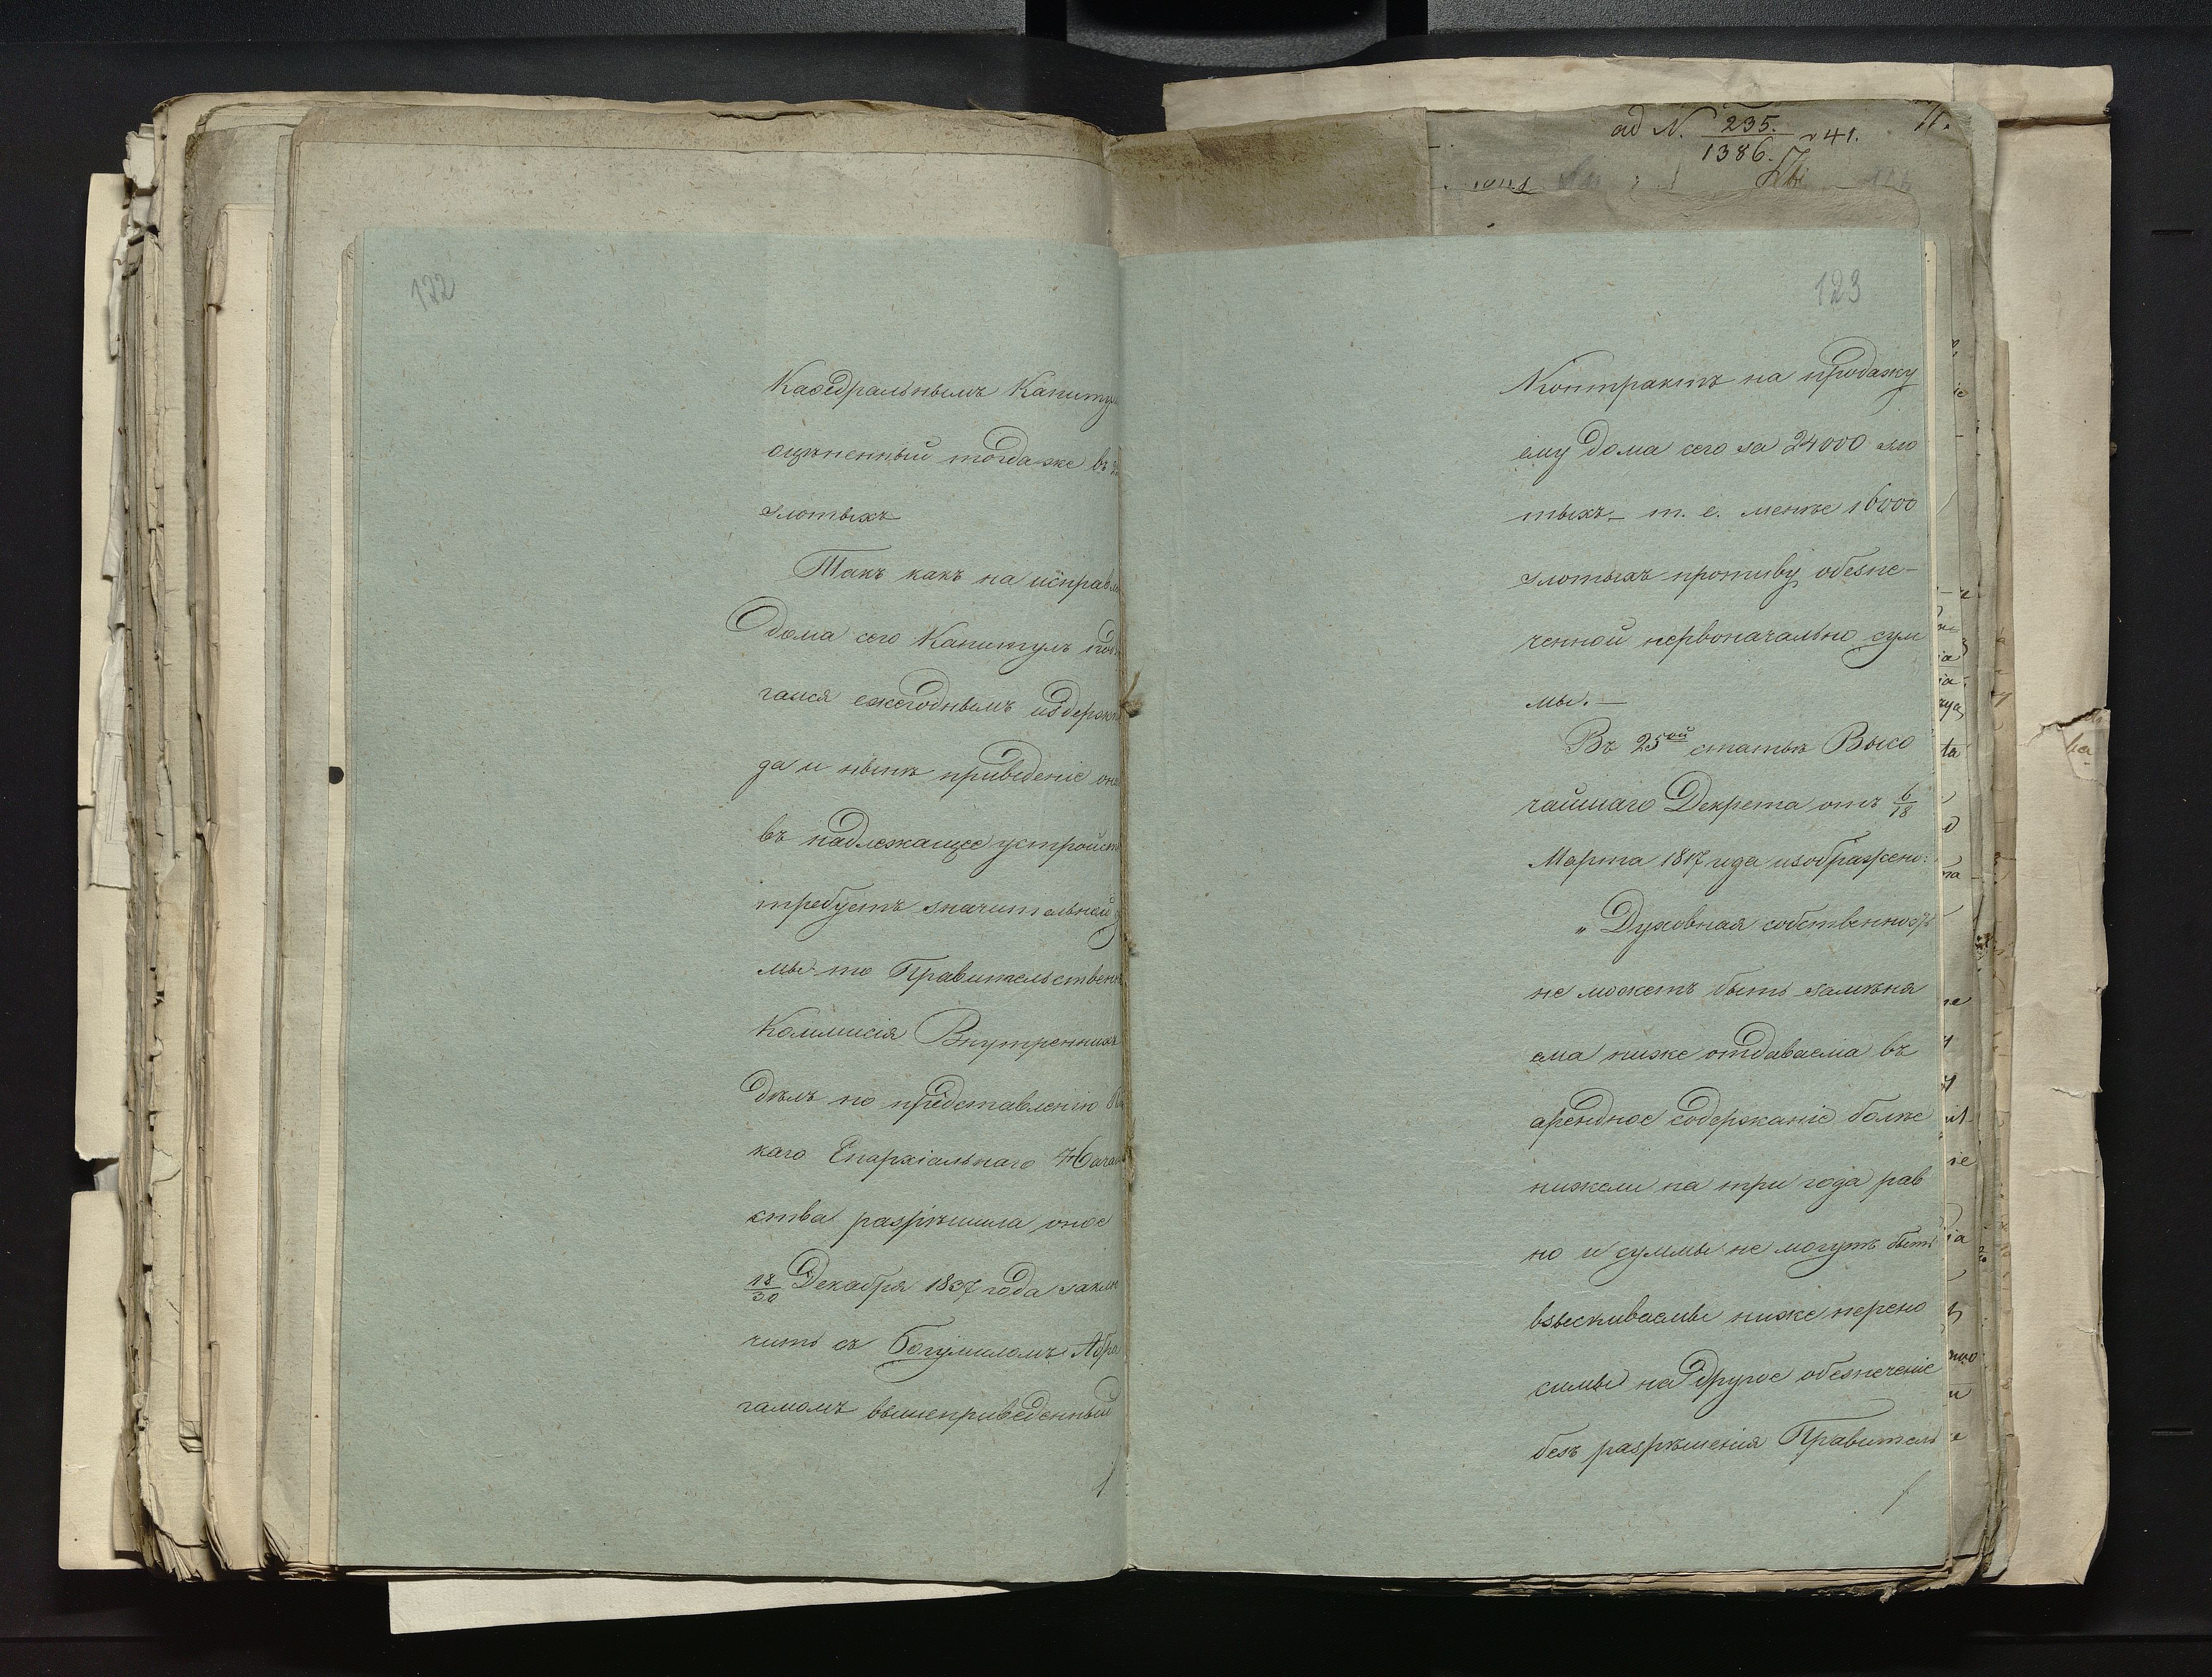 122
Каѳедральнымъ Капиту
оцѣненный тогда-же въ
злотыхъ
Такъ какъ на исправл
дома сего Капитулъ под
гался ежегоднымъ издерж
да и нынѣ приведеніе он
въ надлежащее устройст
требуетъ значительной
мы-то Правительствен
Коммисія Внутреннихъ
дѣлъ по представленію
каго Епархіальнаго Нача
ства разрѣшила оное
18/30 Декабря 1837 года заклю
чить съ Богумиломъ Абра
гамомъ вышеприведенный
ad N. 235./1386. 41.
123
Контрактъ на продажу
ему дома сего за 24000 зло
тыхъ - т. е. менѣе 16000
злотыхъ противу обезпе-
ченной первоначально сум
мы. —
Въ 25ой статьѣ Высо
чайшаго Декрета отъ 6/18
Марта 1817 года изображено:
„Духовная собственность
не можетъ быть замѣня
ема ниже отдаваема въ
арендное содержаніе болѣе
нижели на три года рав
но и суммы не могутъ быть
взыскиваемы ниже перено
симы на другое обезпеченіе
безъ разрѣшенія Правитель